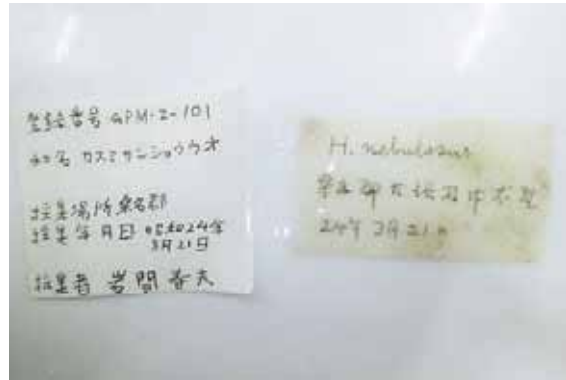 登録番号 GPM-Z-101
和名 カスミサンショウウオ
採集場所 桑名郡
採集年月日 昭和24年
3月21日
採集者 岩間春夫
H. nebulosus
24年3月21日